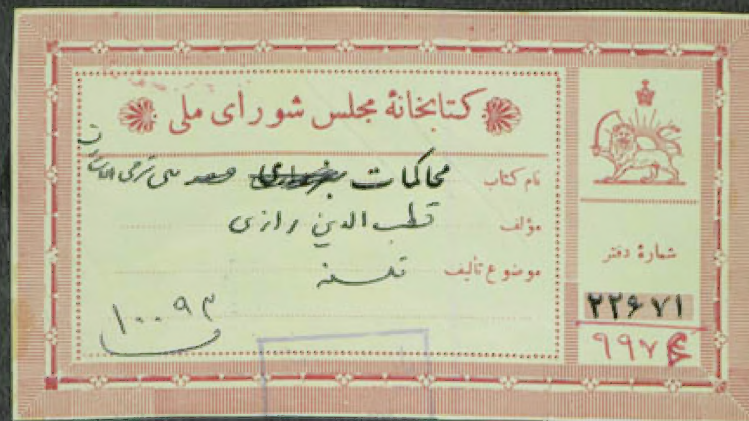 کتابخانهٔ مجلس شورای ملی
نام کتاب محاکمات
مؤلف قطب الدین رازی
موضوع تألیف فلسفه
۱۰۰۹۳
شمارهٔ دفتر
۲۲۶۷۱
۹۹۷۴